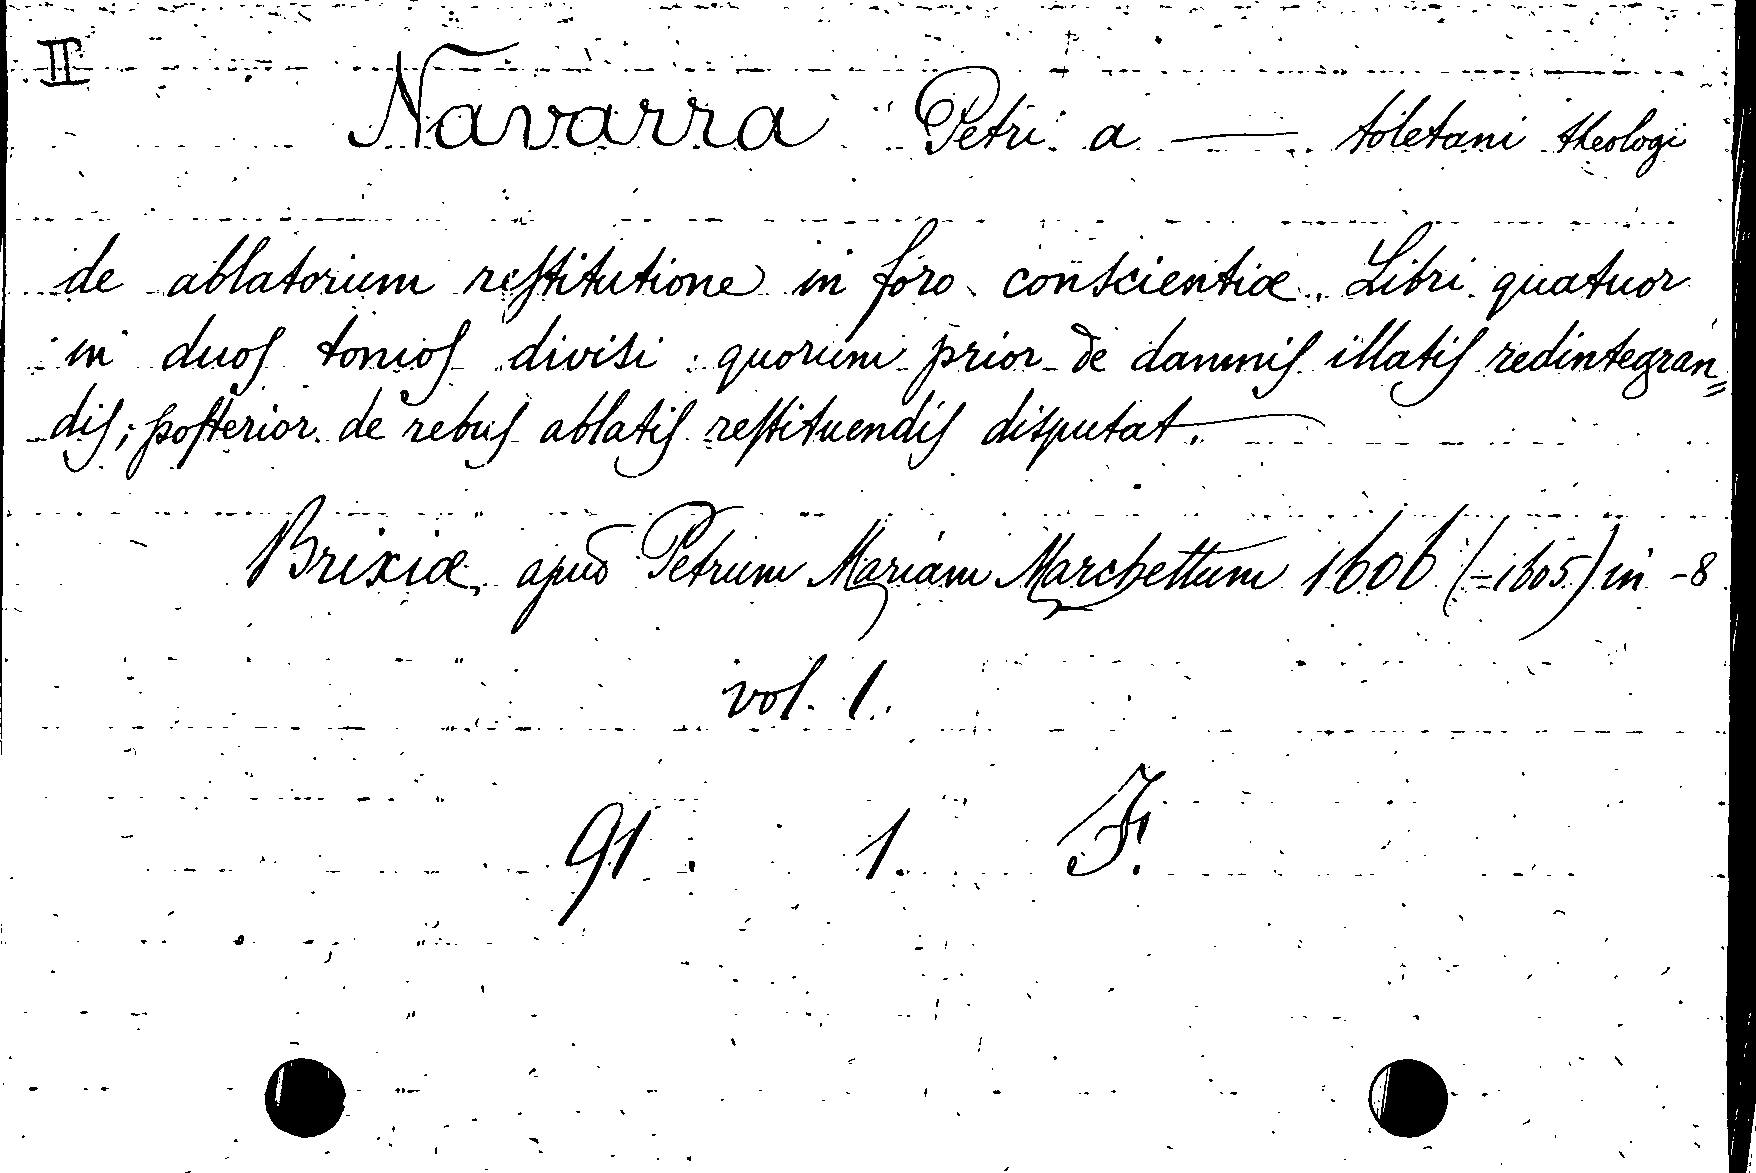 II
Navarra Petri a — toletani theologi
de ablatorum restitutione in foro conscientiæ. Libri quatuor
in duos tomos divisi: quorum prior de damnis illatis redintegran=
dis; posterior de rebus ablatis restituendis disputat.
Brixiæ, apud Petrum Mariam Marchettum 1606 (-1605) in -8
vol. 1.
91. 1. F.